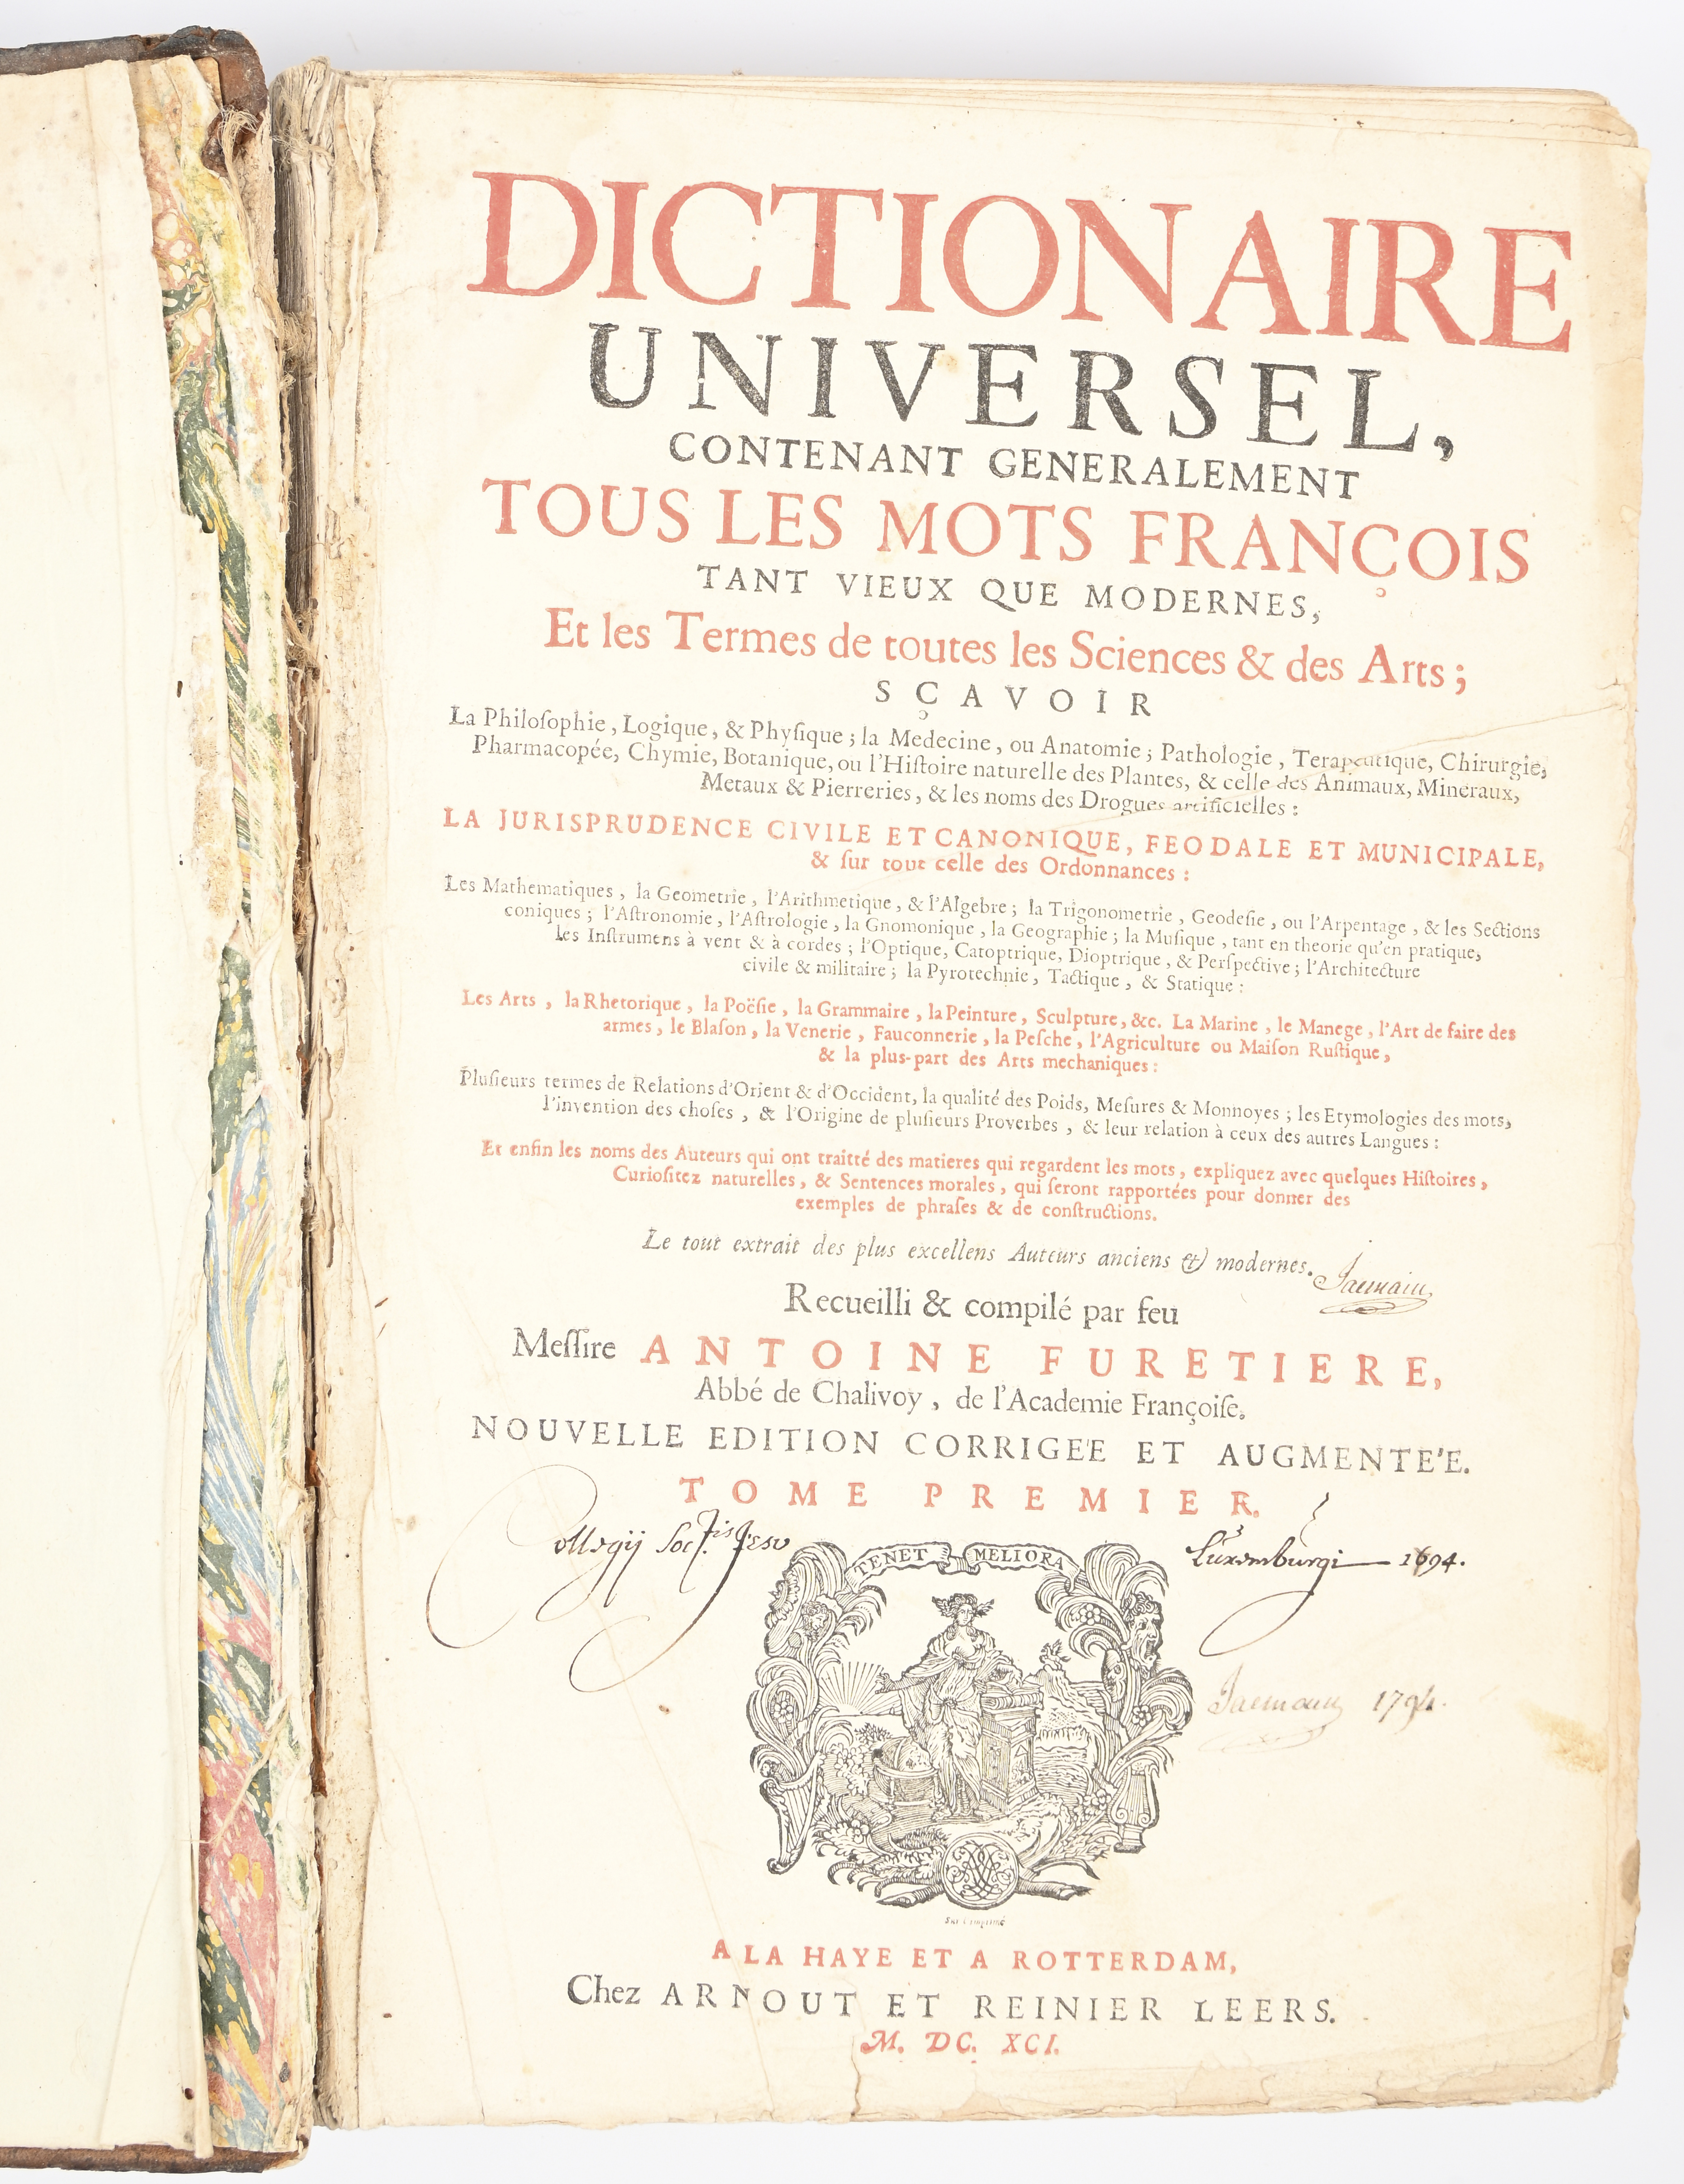 DICTIONAIRE
UNIVERSEL,
CONTENANT GENERALEMENT
TOUS LES MOTS FRANÇOIS
TANT VIEUX QUE MODERNES,
Et les Termes de toutes les Sciences & des Arts;
SÇAVOIR
La Philoſophie, Logique, & Phyſique; la Medecine, ou Anatomie; Pathologie, Terapeutique, Chirurgie,
Pharmacopée, Chymie, Botanique, ou l'Hiſtoire naturelle des Plantes, & celle des Animaux, Mineraux,
Metaux & Pierreries, & les noms des Drogues artificielles:
LA JURISPRUDENCE CIVILE ET CANONIQUE, FEODALE ET MUNICIPALE,
& ſur tout celle des Ordonnances:
Les Mathematiques, la Geometrie, l'Arithmetique, & l'Algebre; la Trigonometrie, Geodeſie, ou l'Arpentage, & les Sections
coniques; l'Aſtronomie, l'Aſtrologie, la Gnomonique, la Geographie; la Muſique, tant en theorie qu'en pratique,
les Inſtrumens à vent & à cordes; l'Optique, Catoptrique, Dioptrique, & Perſpective; l'Architecture
civile & militaire; la Pyrotechnie, Tactique, & Statique:
Les Arts, la Rhetorique, la Poëſie, la Grammaire, la Peinture, Sculpture, &c. La Marine, le Manege, l'Art de faire des
armes, le Blaſon, la Venerie, Fauconnerie, la Peſche, l'Agriculture ou Maiſon Ruſtique,
& la plus-part des Arts mechaniques:
Pluſieurs termes de Relations d'Orient & d'Occident, la qualité des Poids, Meſures & Monnoyes; les Etymologies des mots,
l'invention des choſes, & l'Origine de pluſieurs Proverbes, & leur relation à ceux des autres Langues:
Et enfin les noms des Auteurs qui ont traitté des matieres qui regardent les mots, expliquez avec quelques Hiſtoires,
Curioſitez naturelles, & Sentences morales, qui ſeront rapportées pour donner des
exemples de phraſes & de conſtructions.
Le tout extrait des plus excellens Auteurs anciens & modernes.
Recueilli & compilé par feu
Meſſire ANTOINE FURETIERE,
Abbé de Chalivoy, de l'Academie Françoiſe.
NOUVELLE EDITION CORRIGE'E ET AUGMENTE'E.
TOME PREMIER.
Collegij Soc.tis Jesu Luxemburgi 1694.
TENET MELIORA
1794.
A LA HAYE ET A ROTTERDAM,
Chez ARNOUT ET REINIER LEERS.
M. DC. XCI.